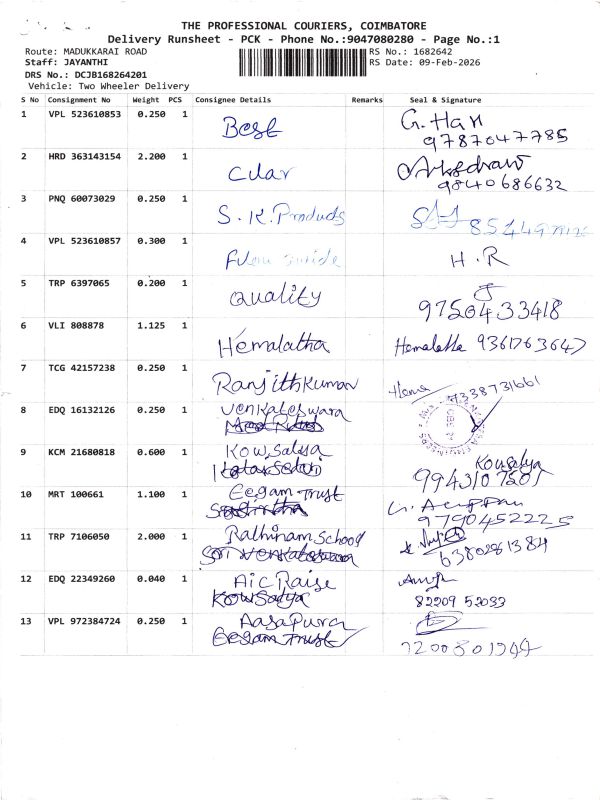 THE PROFESSIONAL COURIERS, COIMBATORE
Delivery Runsheet - PCK - Phone No.:9047080280 - Page No.:1
Route: MADUKKARAI ROAD
RS No.: 1682642
Staff: JAYANTHI
RS Date: 09-Feb-2026
DRS No.: DCJB168264201
Vehicle: Two Wheeler Delivery
S No Consignment No Weight PCS Consignee Details Remarks Seal & Signature
1 VPL 523610853 0.250 1 Best G. Hari
9787047785
2 HRD 363143154 2.200 1 Cular
9840686632
3 PNQ 60073029 0.250 1 S.K. Products
4 VPL 523610857 0.300 1 H.R
5 TRP 6397065 0.200 1 Quality
9750433418
6 VLI 808878 1.125 1 Hemalatha Hemalatha 9361763647
7 TCG 42157238 0.250 1 Ranjithkumar Hema 9338731661
8 EDQ 16132126 0.250 1 Venkateswara
9 KCM 21680818 0.600 1 Kowsalya Kowsalya
9943107501
10 MRT 100661 1.100 1 Eegam Trust
9790452225
11 TRP 7106050 2.000 1 Rathinam School
Sri Venkateswara 6380281384
12 EDQ 22349260 0.040 1 Aic Raise
Kowsalya 82209 52033
13 VPL 972384724 0.250 1 Aasapura
Eegam Trust 7200501944